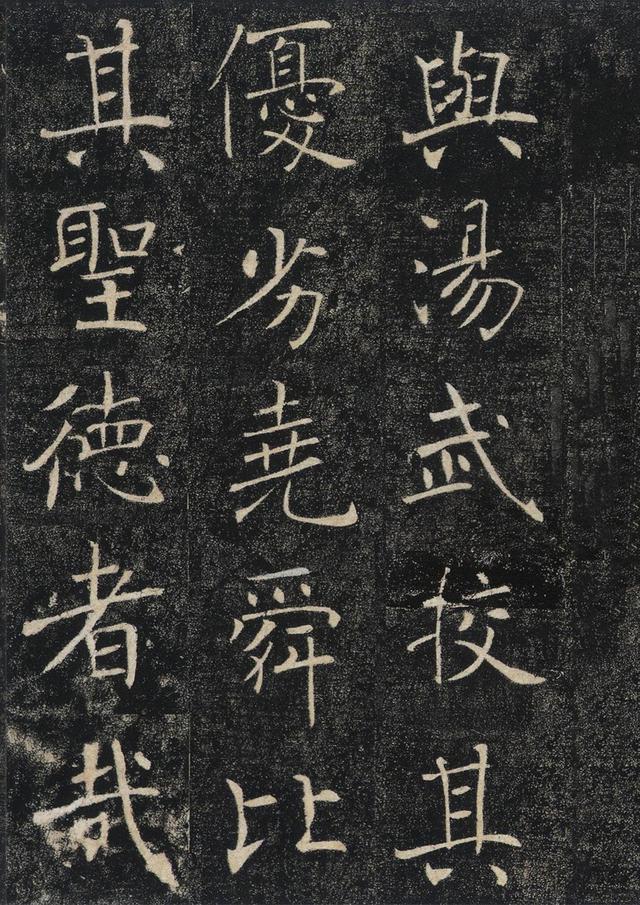 與湯武挍其
優劣堯舜比
其聖德者哉